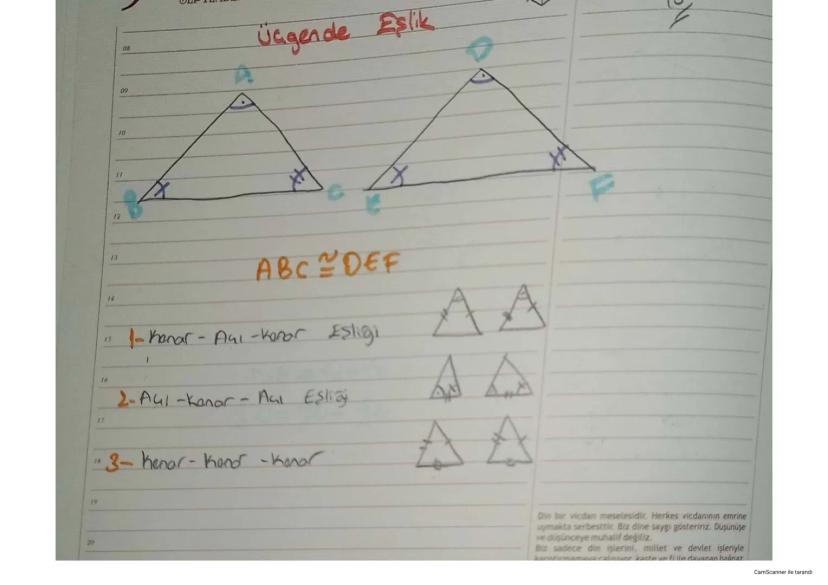 Üçgende Eşlik
08
A
D
09
10
11
B
C
E
F
12
13
ABC ≅ DEF
14
15
1- Kenar - Açı - Kenar Eşliği
16
2- Açı - Kenar - Açı Eşliği
17
18
3- Kenar - Kenar - Kenar
19
20
Din bir vicdan meselesidir. Herkes vicdanının emrine
uymakta serbesttir. Biz dine saygı gösteririz. Düşünüşe
ve düşünceye muhalif değiliz.
Biz sadece din işlerini, millet ve devlet işleriyle
CamScanner ile tarandı